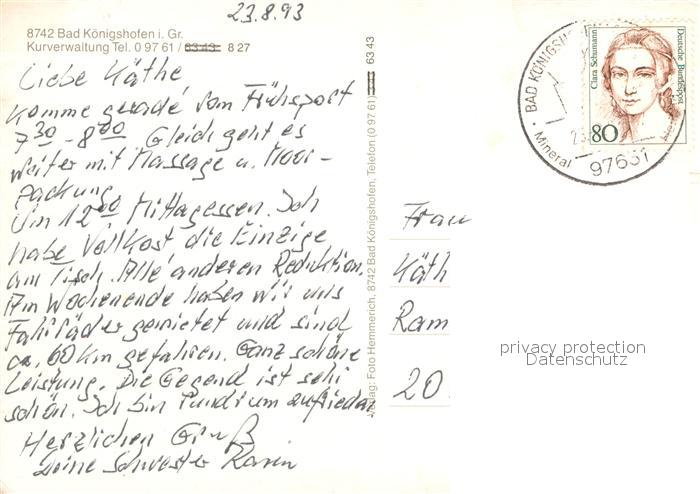 23.8.93
8742 Bad Königshofen i. Gr.
Kurverwaltung Tel. 0 97 61 / 63 43 8 27
Liebe Käthe
Komme gerade vom Frühsport
7 30 - 8 00 Gleich geht es
weiter mit Massage u. Moor-
packung
Um 12 00 Mittagessen. Ich
habe Vollkost die Einzige
am Tisch. Alle anderen Reduktion.
Am Wochenende haben wir uns
Fahrräder gemietet und sind
ca. 60 km gefahren. Ganz schöne
Leistung. Die Gegend ist sehr
schön. Ich bin rundrum zufrieden
Herzlichen Gruß
Deine Schwester Karin
Verlag: Foto Hemmerich, 8742 Bad Königshofen, Telefon (0 97 61) 63 43
Frau
Käth
Ram
20
privacy protection
Datenschutz
BAD KÖNIGSHO
Mineral
97631
Clara Schumann
Deutsche Bundespost
80